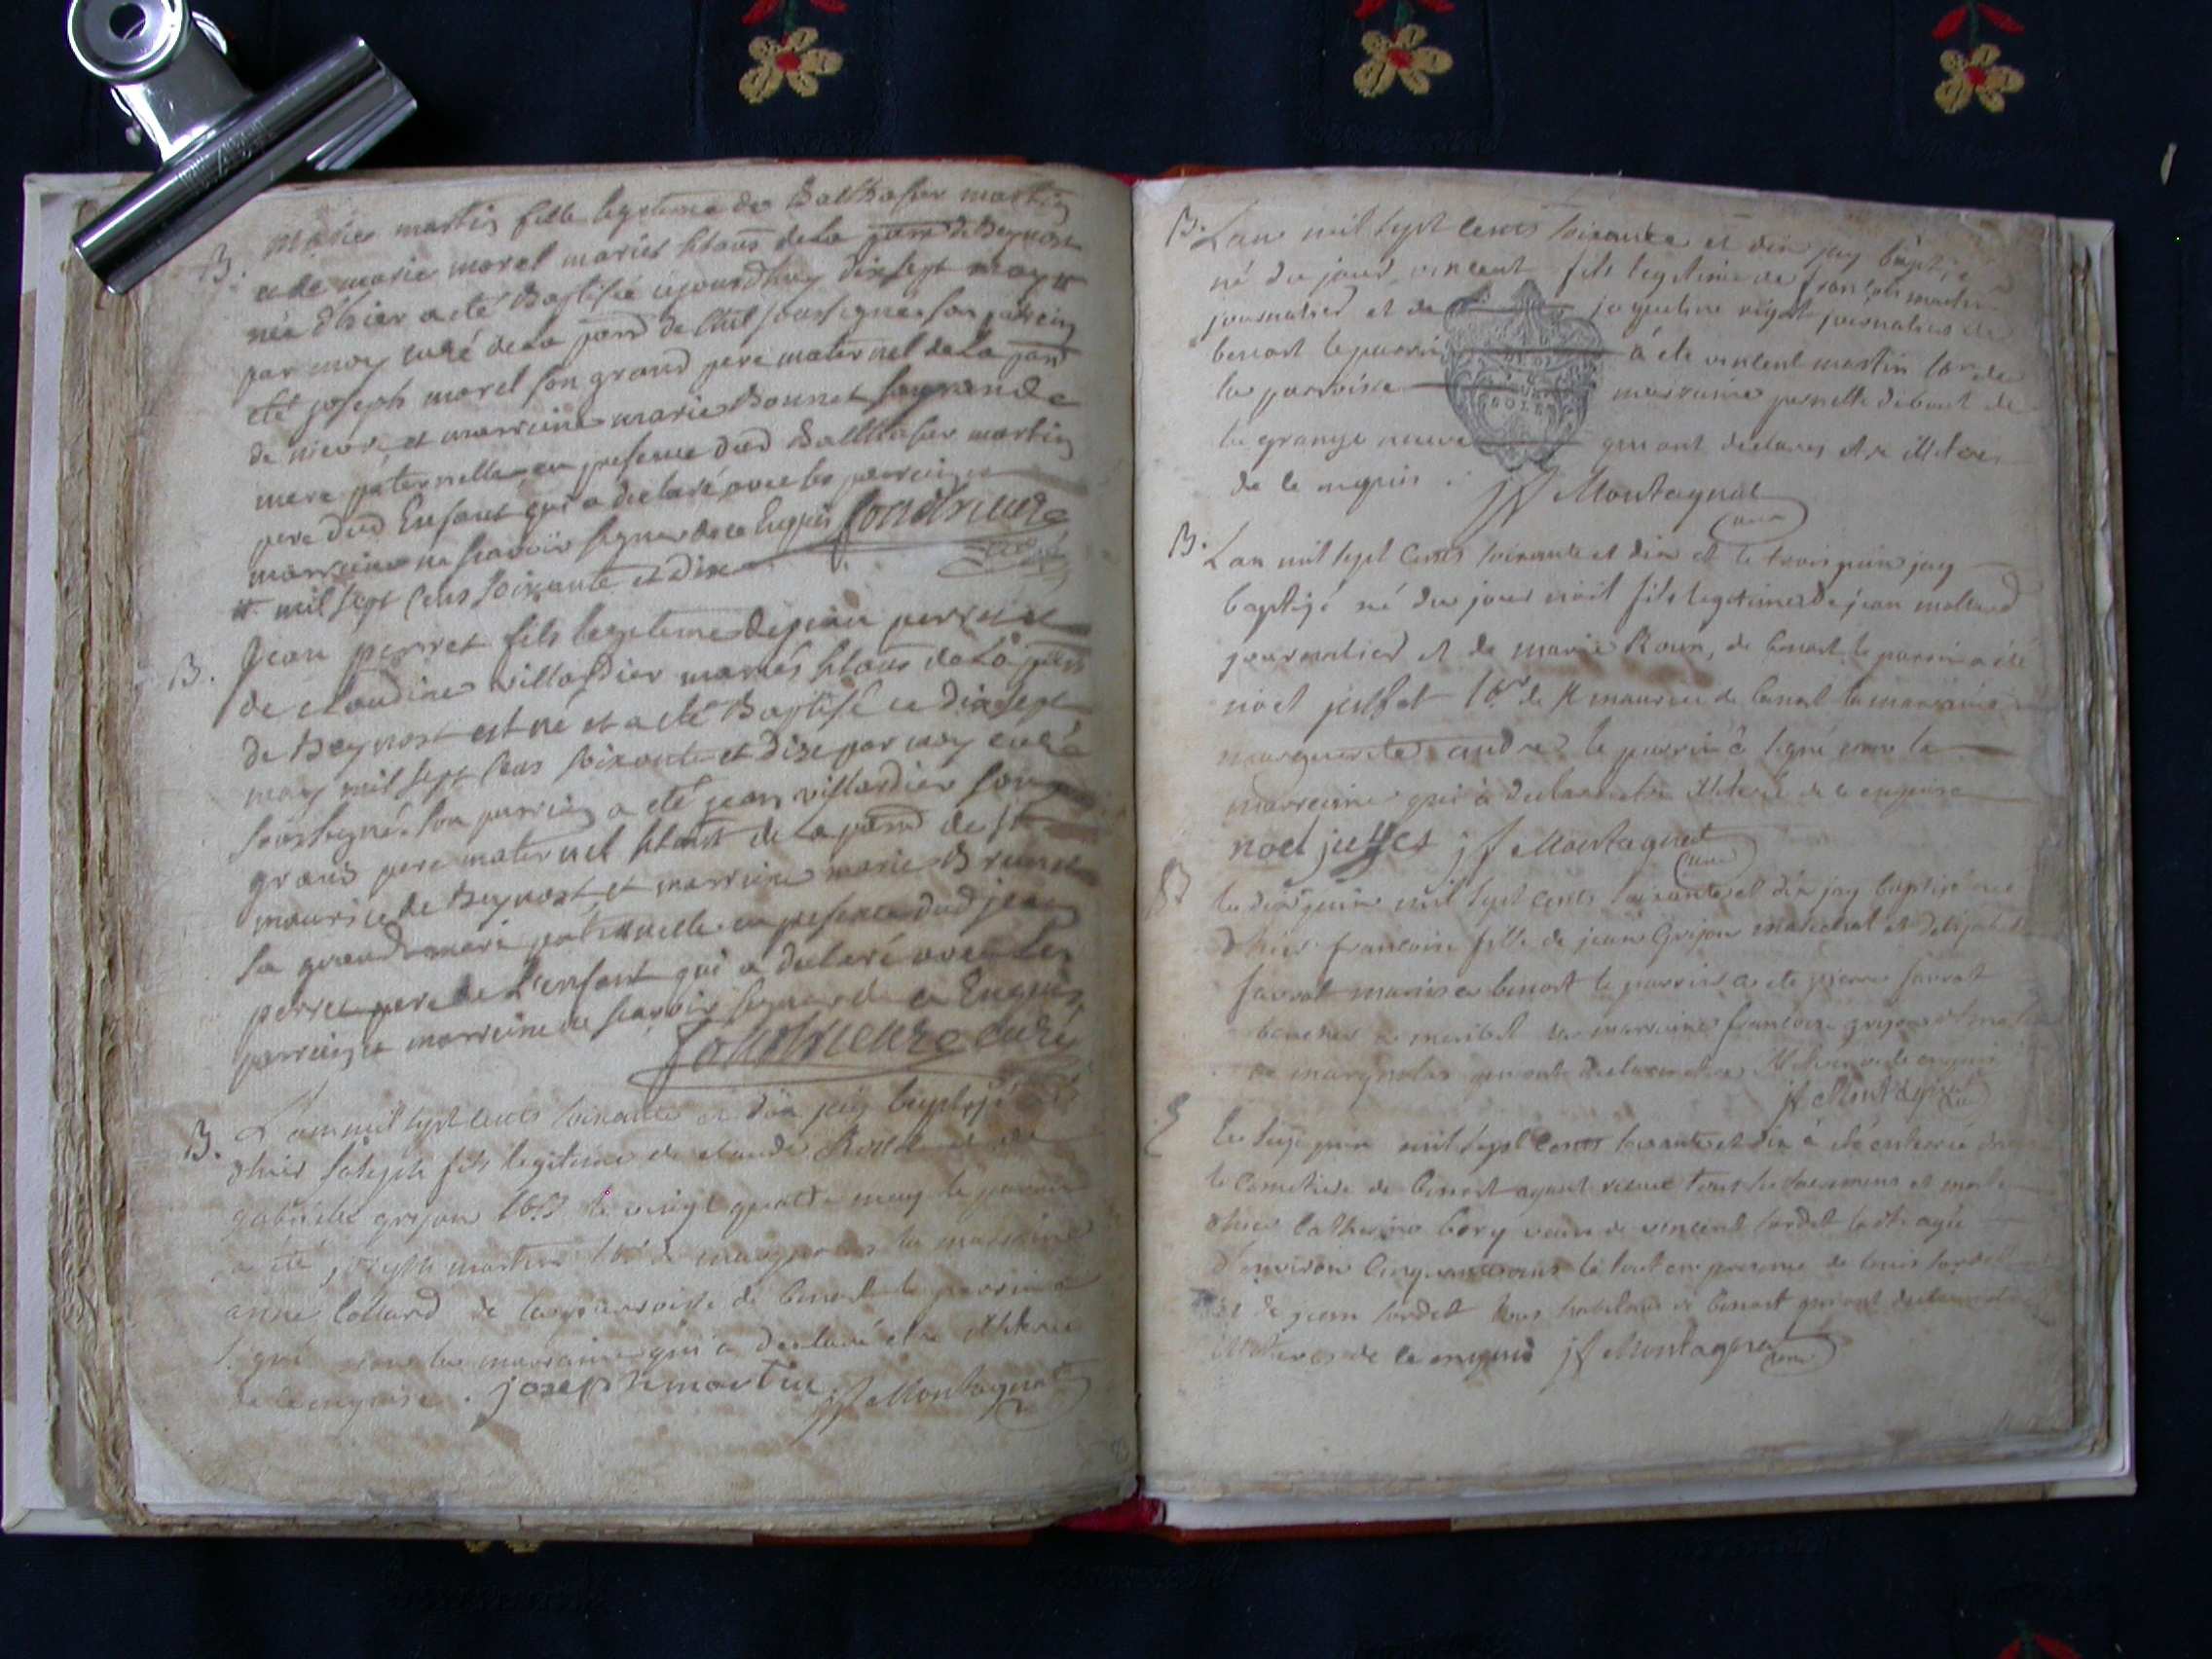 B. Marie martin fille legitime de Balthasar martin
et de marie morel mariés de la parr de Beynost
née d'hier a eté Baptisée aujourdhuy dix sept may #
par moy curé de la parr de soussigné son parrein
eté joseph morel son grand pere maternel de la parr
de et marreine marie Bonnet sa grande
mere paternelle en presence dud Balthasar martin
pere dud Enfant qui a declaré avec les parrein et
marreine ne scavoir signer de ce Enquis
# mil sept cens soixante et dix
B. Jean perret fils legitime de jean perret et
de claudine villardier mariés de la parr
de Beynost est né et a eté Baptisé ce dix sept
may mil sept cens soixante et dix par moy curé
soussigné. son parrein a eté jean villardier son
grand pere maternel de la parr de st
maurice de Beynost, et marreine marie Brunet
sa grand mere paternelle en presence dud jean
perret pere de L'enfant qui a declaré avec les
parrein et marreine ne scavoir signer de ce Enquis
curé
B. L'an mil sept cents soixante et dix jay baptizé
d'hier joseph fils legitime de claude et de
gabrielle grijon le vingt quatre may le parrain
a été joseph martin de la marraine
anne collard de la parroisse de benost le parrain a
signé non la marraine qui a declaré etre illiterée
de ce enquise. joseph martin jf Montagnat
B. Lan mil sept cents soixante et dix jay baptizé
né du jour vincent fils legitime de françois martin
journalier et de jaqueline journaliers de
benost le parrain à eté vincent martin de
la parroisse marraine pernette debout de
la grange neuve qui ont declarés etre illiteres
de ce enquis. jf Montagnat
curé
B. Lan mil sept cents soixante et dix et le trois juin jay
baptizé né du jour noël fils legitime de jean mollard
journalier et de marie Roux, de benost le parrain a été
noel de st maurice de benost la marraine
marguerite andré le parrain à signé non la
marreine qui à declaré etre illiterée de ce enquise
noel jf Montagnat
curé
B le dix juin mil sept cents soixante et dix jay baptisé née
d'hier francoise fille de jean Grijon marechal et delizabet
favrot mariés a benost le parrain a eté pierre favrot
boucher a miribel la marraine francoise grijon
de margnolas qui ont declaré etre illiteres de ce enquis
jf Montagnat
curé
E le juin mil sept cents soixante et dix à été enterré dans
le Cemetiere de benost ayant receue tous les sacremens et morte
d'hier Catherine bory veuve de vincent sordet agée
d'environ Cinquante ans le tout en presence de Louis sordet
et de jean sordet tous habitans de benost qui ont declaré etre
illiteres de ce enquis jf Montagnat
curé